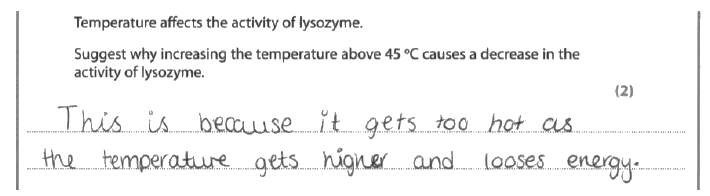 Temperature affects the activity of lysozyme.
Suggest why increasing the temperature above 45 °C causes a decrease in the
activity of lysozyme.
(2)
This is because it gets too hot as
the temperature gets higher and looses energy.